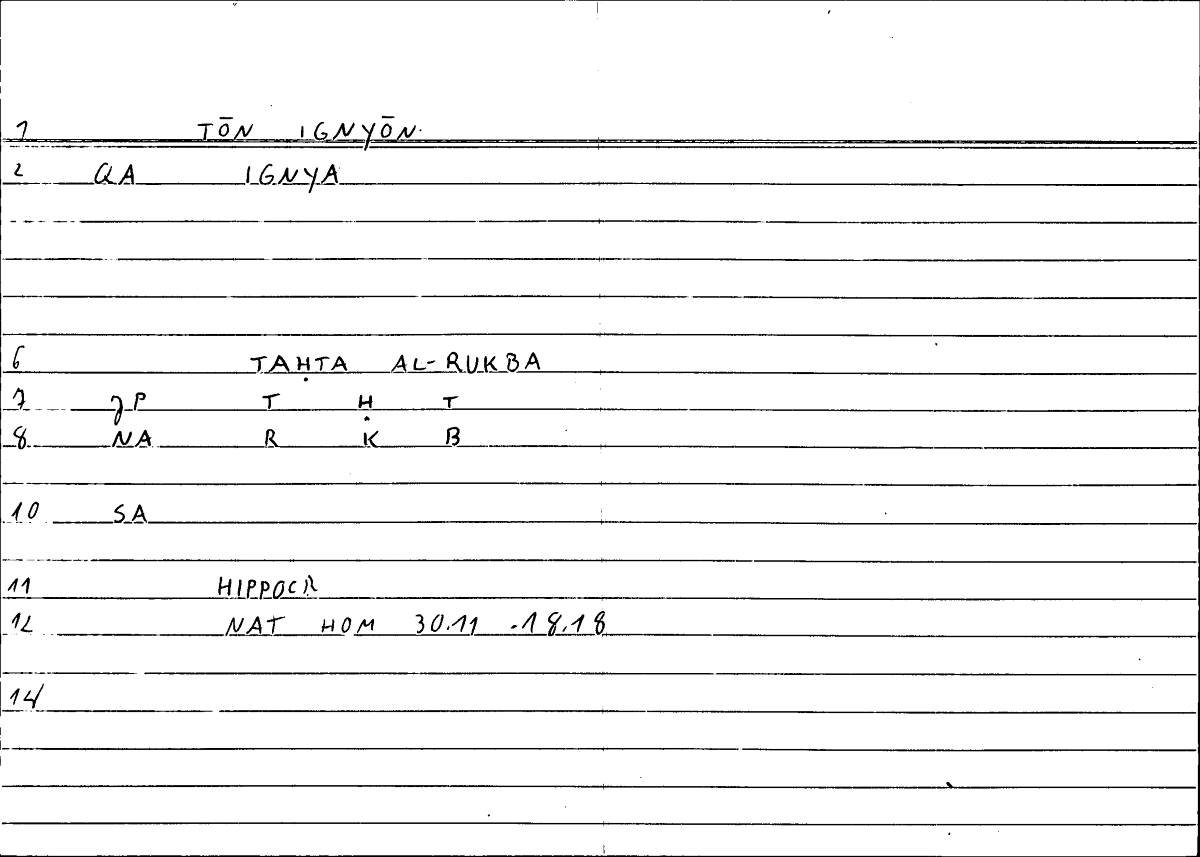 1 TŌN IGNYŌN
2 QA IGNYA
6 TAḤTA AL-RUKBA
7 P T Ḥ T
8 NA R K B
10 SA
11 HIPPOCR
12 NAT HOM 30.11 -18.18
14